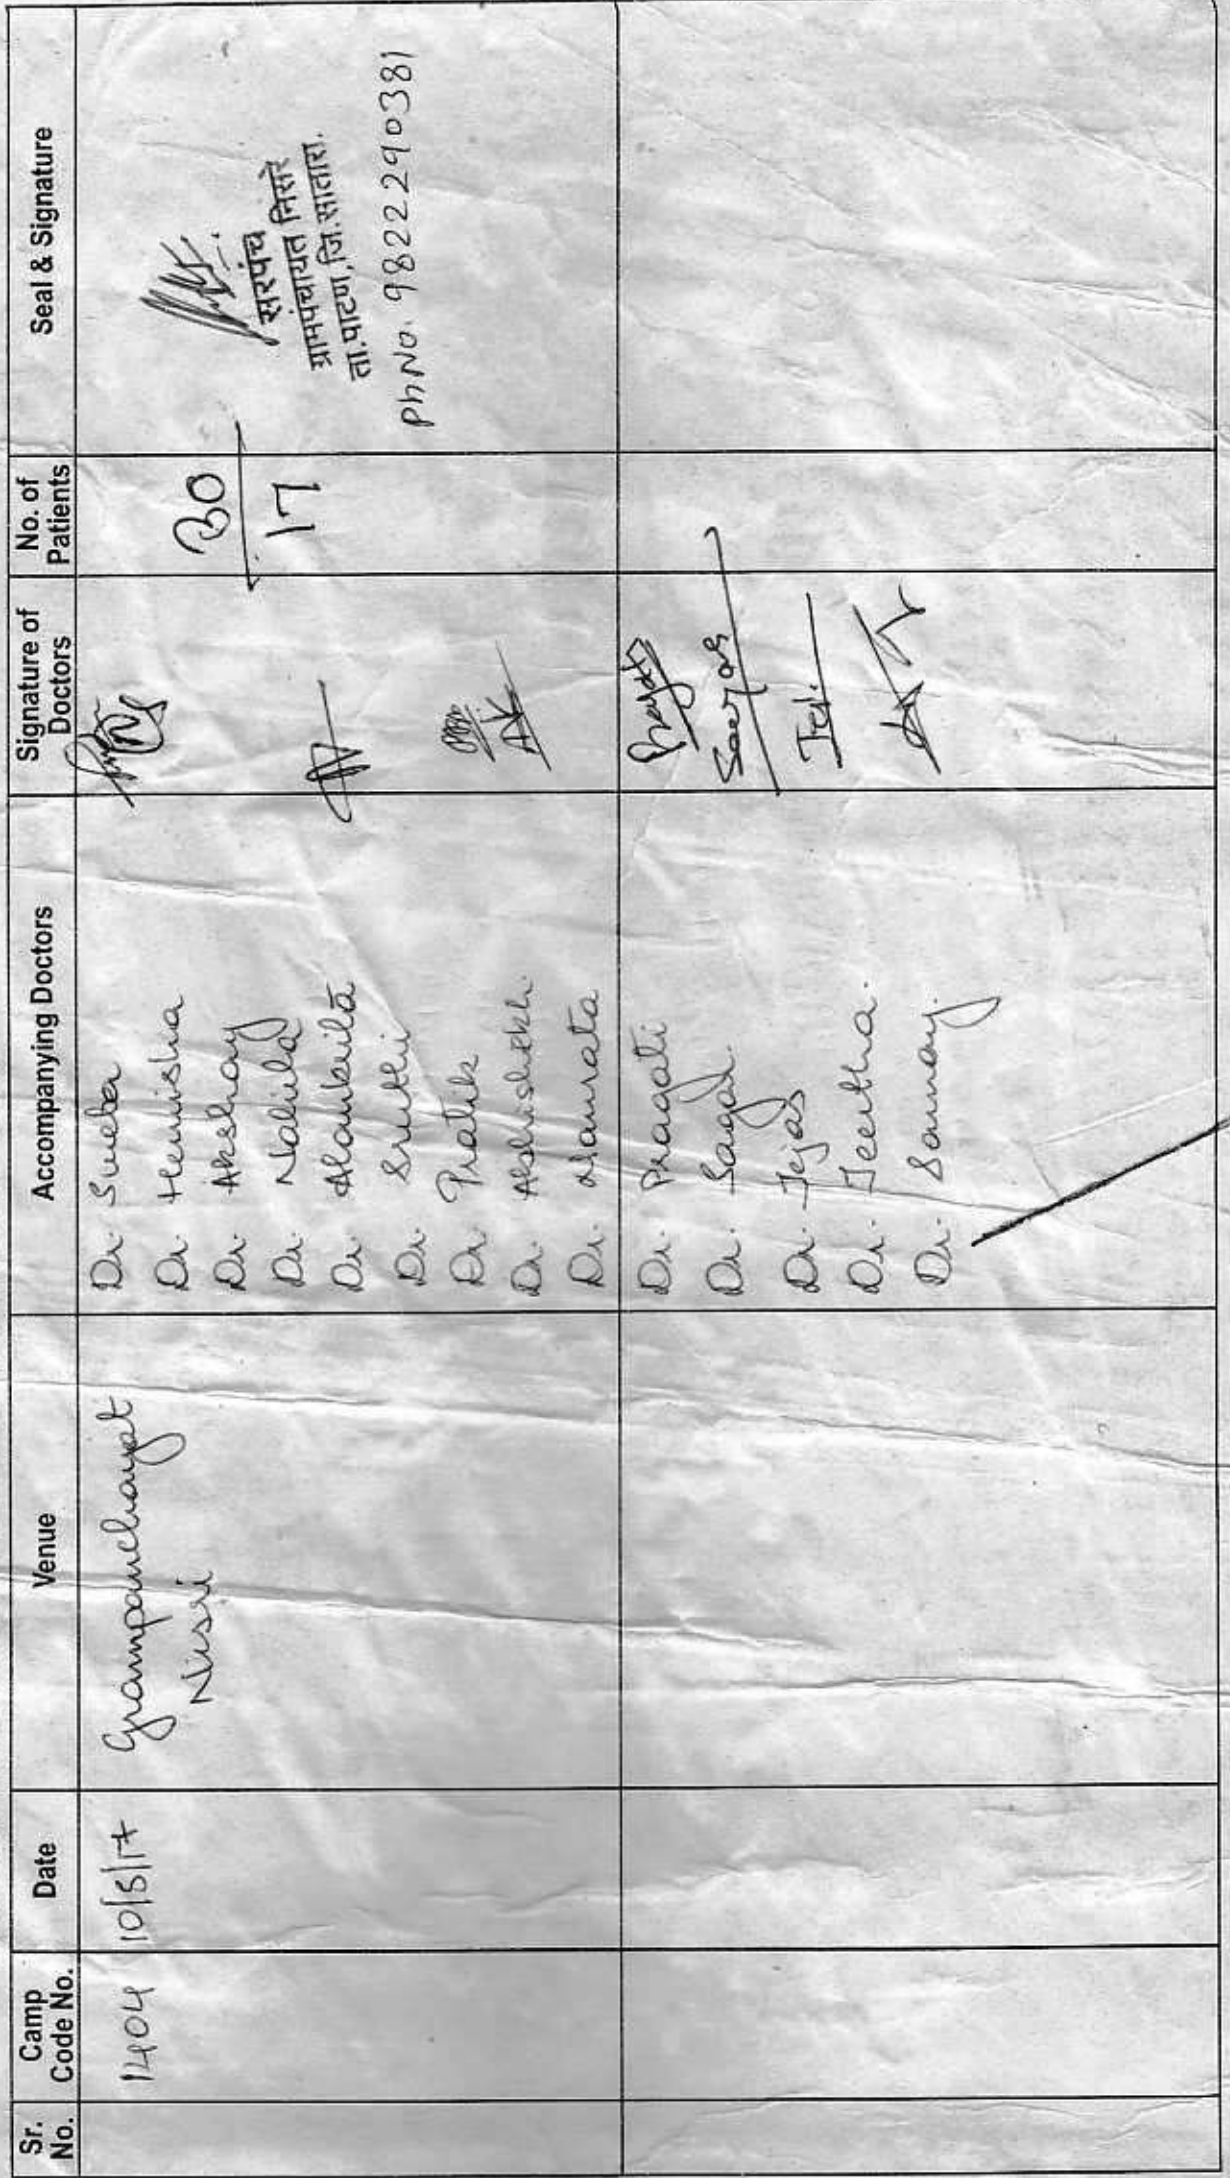 Sr. No.
Camp Code No.
Date
Venue
Accompanying Doctors
Signature of Doctors
No. of Patients
Seal & Signature
1404
10/8/17
Grampanchayat
Nisri
Dr. Sweta
Dr. Hemisha
Dr. Akshay
Dr. Nalulaj
Dr. Alankrita
Dr. Sruthi
Dr. Pratik
Dr. Abhishekh.
Dr. Namrata
AK
30
17
सरपंच
ग्रामपंचायत निसरे
ता.पाटण, जि.सातारा.
Ph No. 9822290381
Dr. Pragati
Dr. Sagar.
Dr. Tejas
Dr. Teertha.
Dr. Sanmay.
Pragati
Saeyas
Tej.